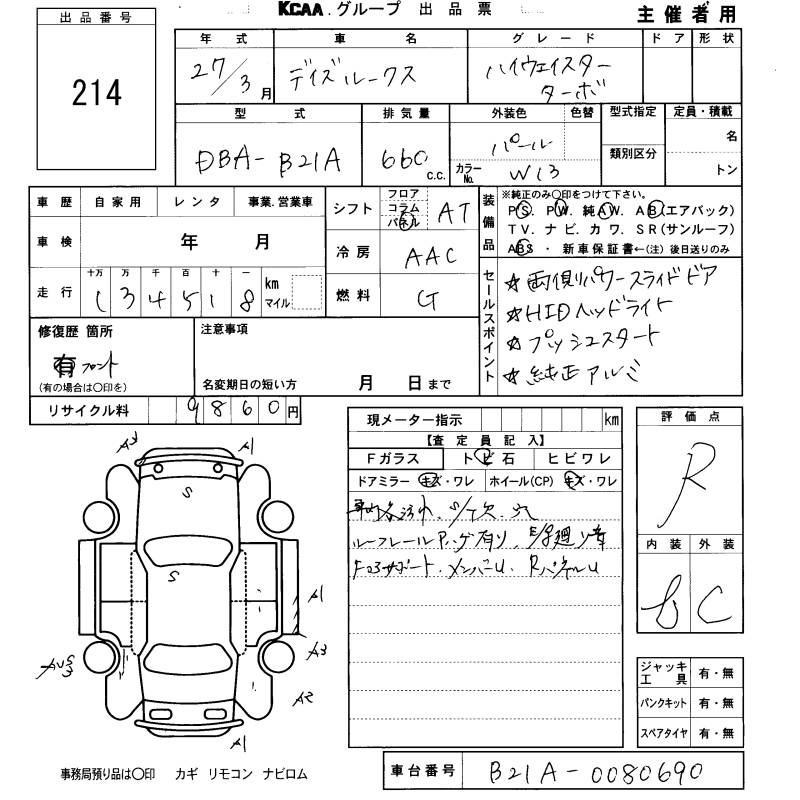 KCAA.グループ 出品票
主催者用
出品番号
214
年式 車名 グレード ドア 形状
27/3月 デイズルークス ハイウェイスター
ターボ
型式 排気量 外装色 色替 型式指定 定員・積載
DBA-B21A 660 c.c. パール 名
類別区分
カラーNo. W13 トン
車歴 自家用 レンタ 事業.営業車
車検 年 月
走行 十万 万 千 百 十 一
1 3 4 5 1 8 km マイル
シフト フロア コラム パネル AT
冷房 AAC
燃料 G
装備品
※純正のみ〇印をつけて下さい。
PS. PW. 純AW. AB(エアバック)
TV. ナビ. カワ. SR(サンルーフ)
ABS ・ 新車保証書←(注) 後日送りのみ
セールスポイント
☆両側パワースライドドア
☆HIDヘッドライト
☆プッシュスタート
☆純正アルミ
修復歴 箇所
有 フロント
(有の場合は〇印を)
注意事項
名変期日の短い方 月 日まで
リサイクル料 9860円
現メーター指示 km
【査定員記入】
Fガラス トビ石 ヒビワレ
ドアミラー キズ・ワレ ホイール(CP) キズ・ワレ
ルーフレール
サポート.メンバーU. RパネルU
評価点
R
内装 外装
C
A1
A1
A3
A2
A1
S
S
ジャッキ工具 有・無
パンクキット 有・無
スペアタイヤ 有・無
事務局預り品は〇印 カギ リモコン ナビロム
車台番号 B21A-0080690